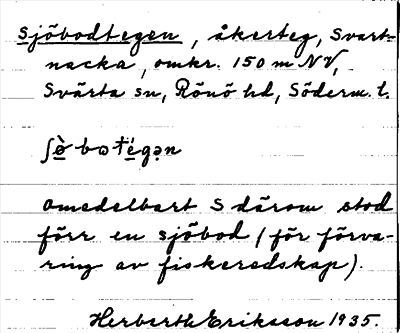 Sjöbodtegen, åkerteg, Svart-
nacka, omkr. 150 m NV,
Svärta sn, Rönö hd, Söderm. l.
ʃø̀bωtégən
omedelbart S därom stod
förr en sjöbod (för förva-
ring av fiskeredskap).
Herberth Eriksson 1935.